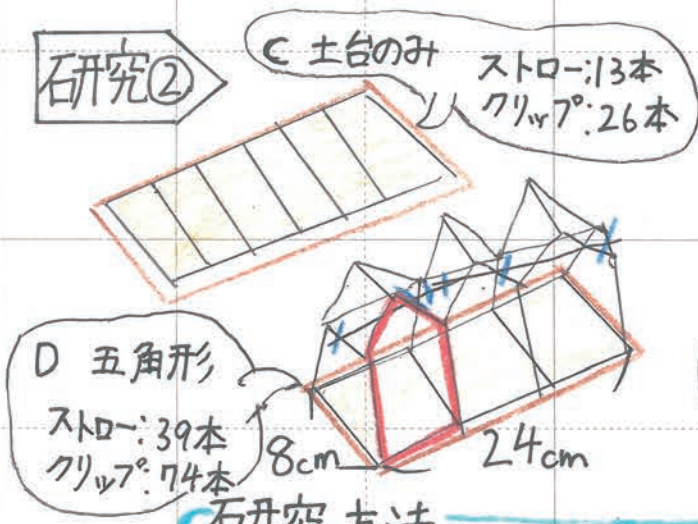 研究②
C 土台のみ
ストロー:13本
クリップ:26本
D 五角形
ストロー:39本
クリップ:74本
8cm
24cm
研究方法